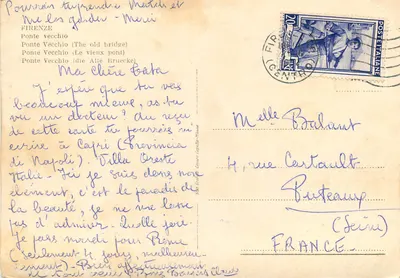 Pourrais tu prendre Match et
me les garder - Merci
FIRENZE
Ponte Vecchio
Ponte Vecchio (The old bridge)
Ponte Vecchio (Le vieux pont)
Ponte Vecchio (die Alte Bruecke)
Ma chère Tata
J'espère que tu vas
beaucoup mieux, as-tu
vu un docteur? Au reçu
de cette carte tu pourrais m'
écrire à Capri (Provincia
di Napoli). Villa Oreste
Italie - Ici je suis dans mon
élément, c'est le paradis de
la beauté, je ne me lasse
pas d'admirer. Quelle joie.
Je pars mardi pour Rome
(seulement 4 jours, malheureu-
sement) - Bien affectueusement
POSTE ITALIANE
FIR
(CENTRO)
Melle Balant
4, rue Cartault
Puteaux
(Seine)
FRANCE